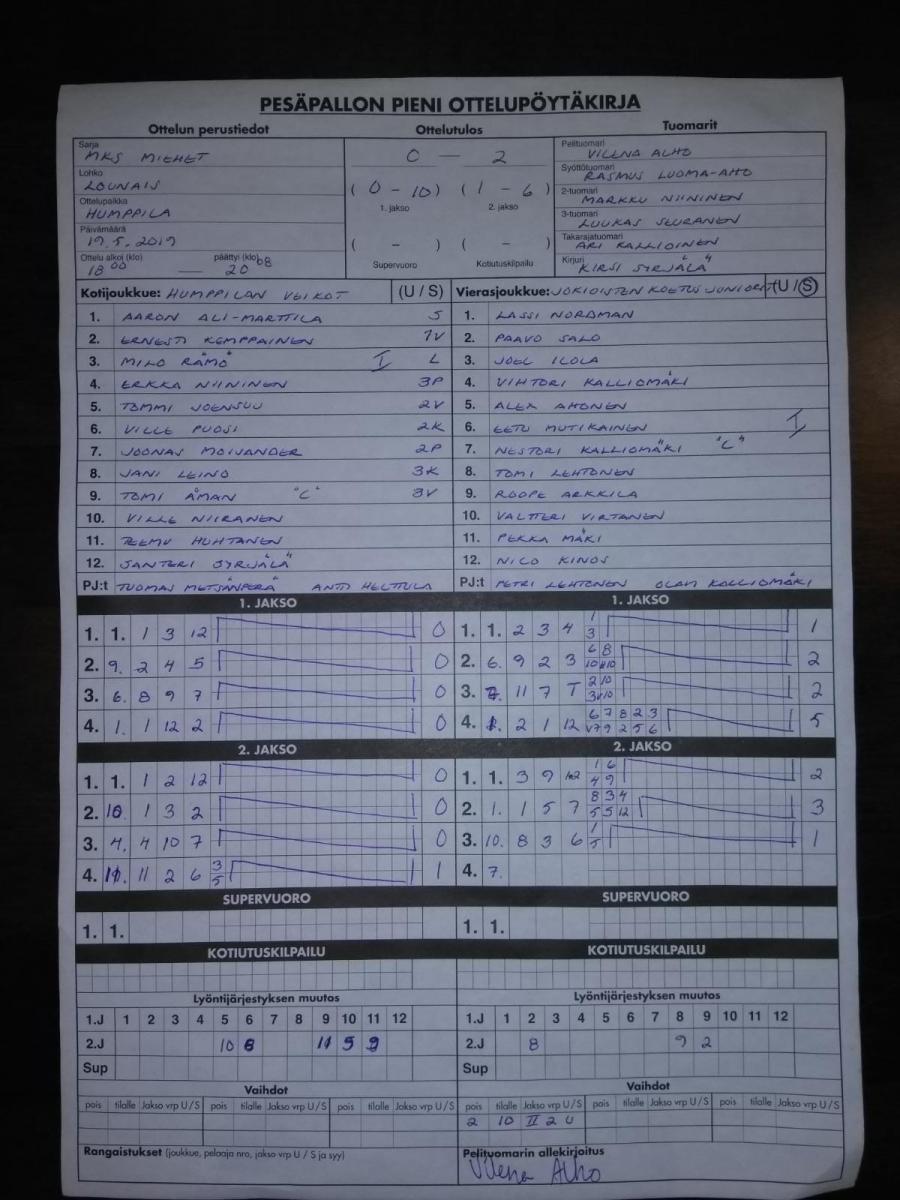 PESÄPALLON PIENI OTTELUPÖYTÄKIRJA
Ottelun perustiedot Ottelutulos Tuomarit
Sarja MKS MIEHET
Lohko LOUNAIS
Ottelupaikka HUMPPILA
Päivämäärä 19.5.2019
Ottelu alkoi (klo) päättyi (klo)
18 00 — 20 08
0 — 2
( 0 - 10 ) ( 1 - 6 )
1. jakso 2. jakso
( - ) ( - )
Supervuoro Kotiutuskilpailu
Pelituomari VILENA ALHO
Syöttötuomari RASMUS LUOMA-AHO
2-tuomari MARKKU NIININEN
3-tuomari LUUKAS SEURANEN
Takarajatuomari ARI KALLIOINEN
Kirjuri KIRSI SYRJÄLÄ
Kotijoukkue: HUMPPILAN VEIKOT (U / S)
1. AARON ALI-MARTTILA S
2. ERNESTI KEMPPAINEN 1V
3. MILO RÄMÖ I L
4. ERKKA NIININEN 3P
5. TOMMI JOENSUU 2V
6. VILLE PUOSI 2K
7. JOONAS MOIJANDER 2P
8. JANI LEINO 3K
9. TOMI ÅMAN "C" 3V
10. VILLE NIIRANEN
11. TEEMU HUHTANEN
12. SANTERI SYRJÄLÄ
PJ:t TUOMAS METSÄNPERÄ ANTI HELTTULA
Vierasjoukkue: JOKIOISTEN KOETUS JUNIORIT (U / S)
1. LASSI NORDMAN
2. PAAVO SALO
3. JOEL ILOLA
4. VIHTORI KALLIOMÄKI
5. ALEX AHONEN
6. EETU MUTIKAINEN I
7. NESTORI KALLIOMÄKI "C"
8. TOMI LEHTONEN
9. ROOPE ARKKILA
10. VALTTERI VIRTANEN
11. PEKKA MÄKI
12. NICO KINOS
PJ:t PETRI LEHTONEN OLAVI KALLIOMÄKI
1. JAKSO
1. 1. 1 3 12 0
2. 9. 2 4 5 0
3. 6. 8 9 7 0
4. 1. 1 12 2 0
2. JAKSO
1. 1. 1 2 12 0
2. 10. 1 3 2 0
3. 4. 4 10 7 0
4. 11. 11 2 6 3 5 1
SUPERVUORO
1. 1.
KOTIUTUSKILPAILU
1. JAKSO
1. 1. 2 3 4 1 3 1
2. 6. 9 2 3 6 8 2
3. 11 7 T 2 10 2
4. 2 1 12 6 7 8 2 3 5
2. JAKSO
1. 1. 3 9 1 6 4 9 2
2. 1. 1 5 7 8 3 4 5 5 12 3
3. 10. 8 3 6 1 5 1
4. 7.
SUPERVUORO
1. 1.
KOTIUTUSKILPAILU
Lyöntijärjestyksen muutos
1.J 1 2 3 4 5 6 7 8 9 10 11 12
2.J 10 6 11 5 9
Sup
Vaihdot
pois tilalle Jakso vrp U / S pois tilalle Jakso vrp U / S pois tilalle Jakso vrp U / S
Rangaistukset (joukkue, pelaaja nro, jakso vrp U / S ja syy)
Lyöntijärjestyksen muutos
1.J 1 2 3 4 5 6 7 8 9 10 11 12
2.J 8 9 2
Sup
Vaihdot
pois tilalle Jakso vrp U / S pois tilalle Jakso vrp U / S pois tilalle Jakso vrp U / S
2 10 II 2 U
Pelituomarin allekirjoitus
Vilena Alho